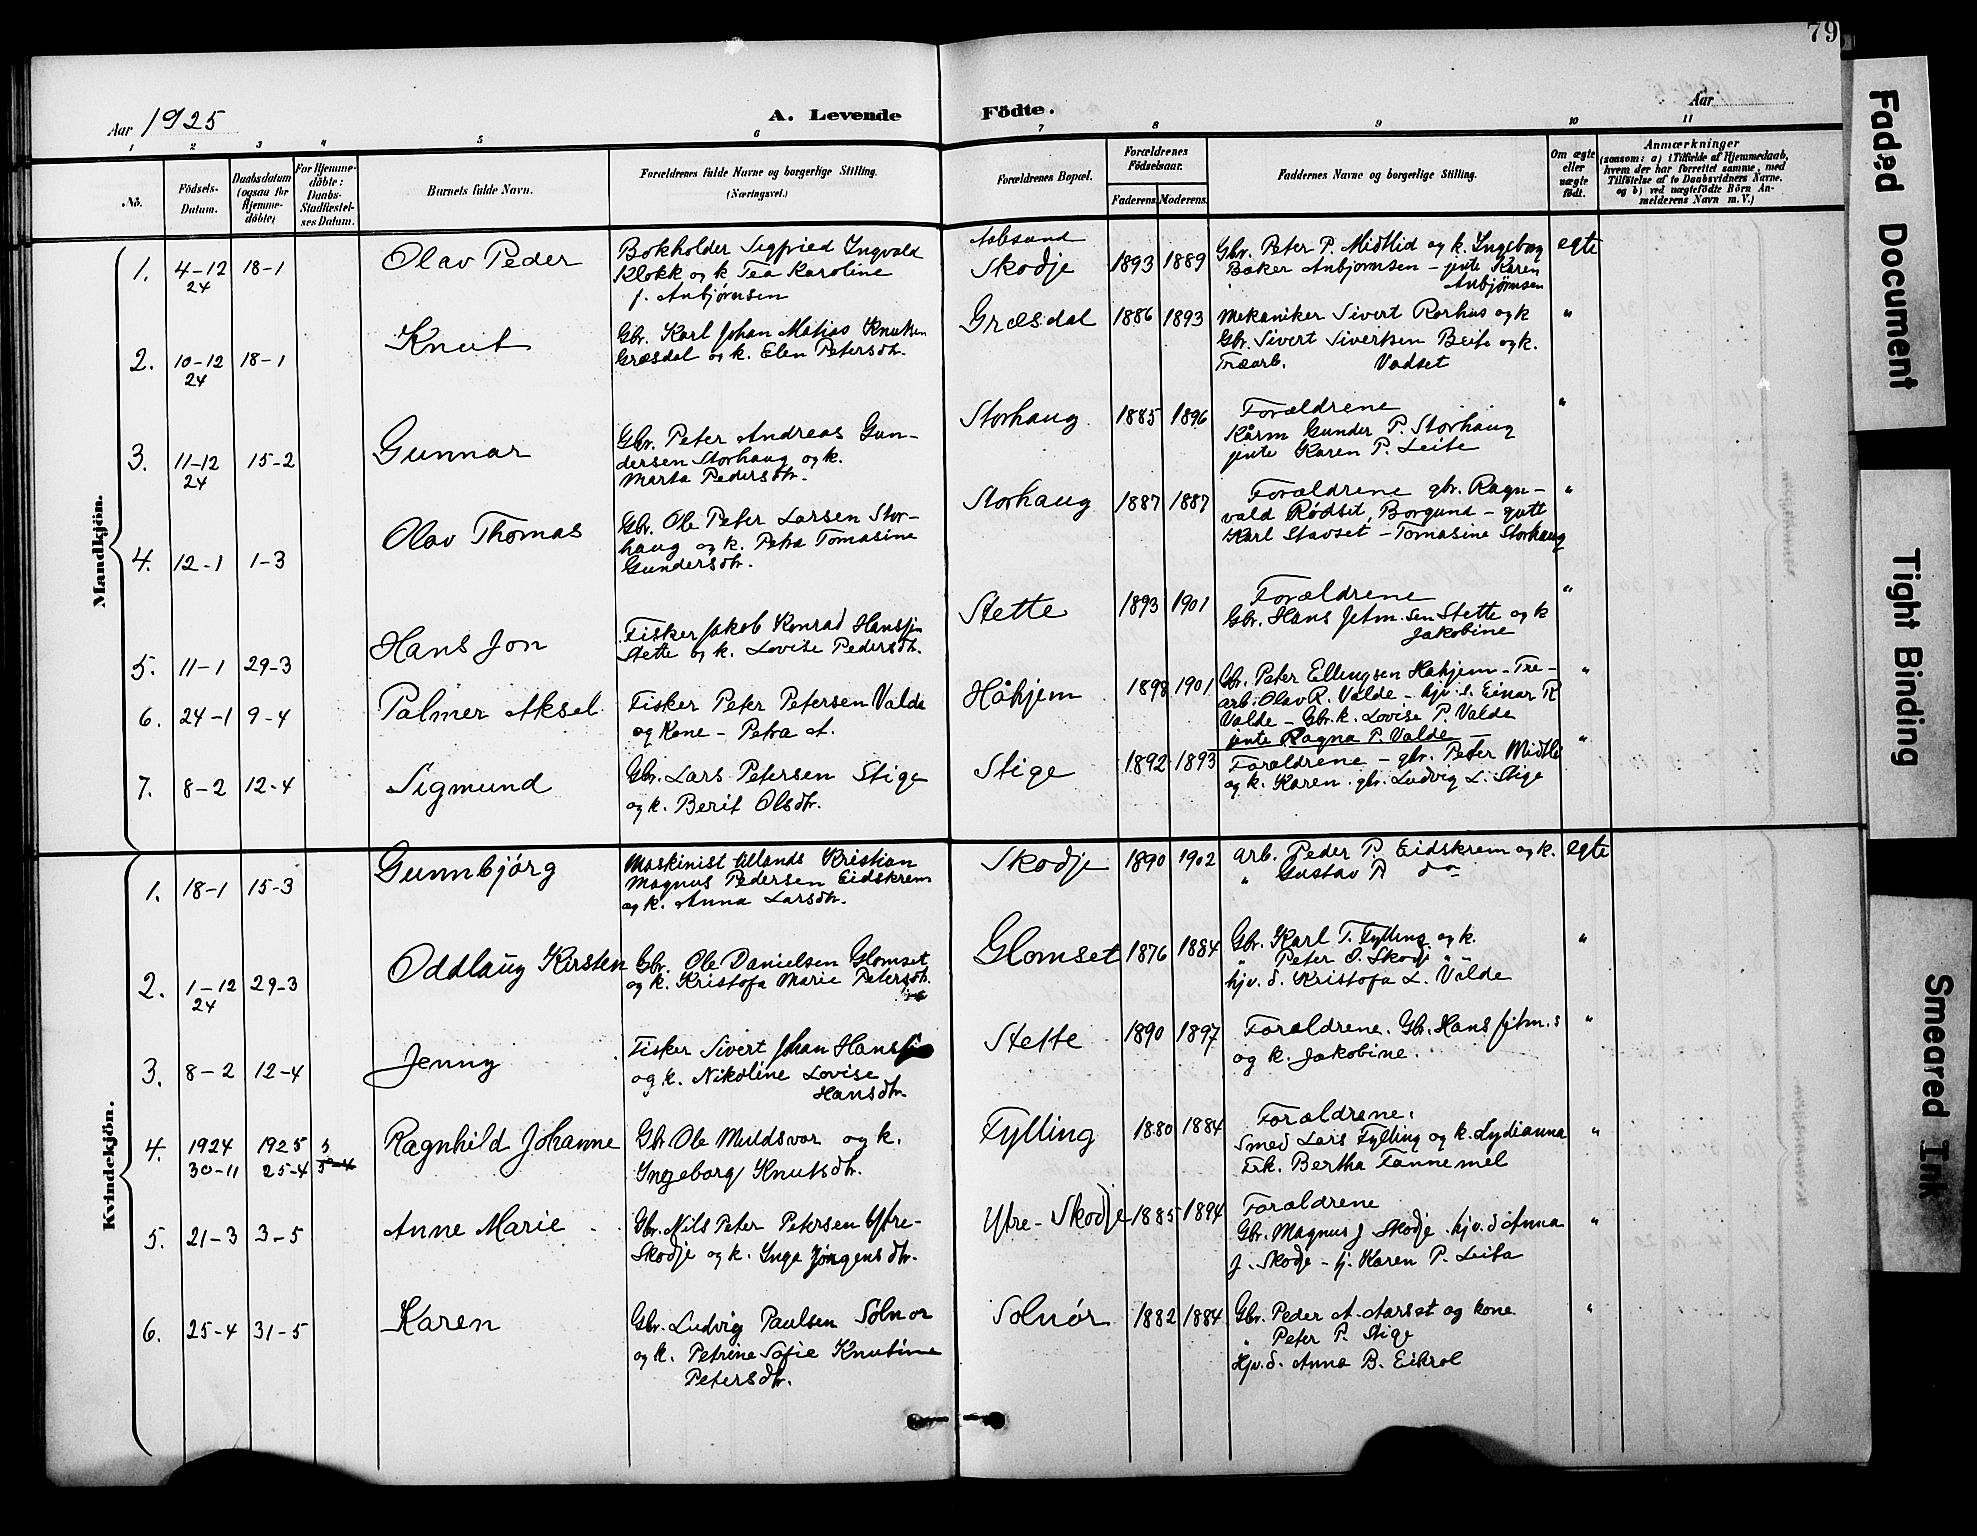 79
Aar 1925
A. Levende Födte.
Aar
1 2 3 4 5 6 7 8 9 10 11
No.
Födsels-Datum.
Daabsdatum (ogsaa for Hjemme-döbte)
For Hjemme-döbte: Daabs Stadfæstel-ses Datum.
Barnets fulde Navn.
Forældrenes fulde Navne og borgerlige Stilling.
(Næringsvei.)
Forældrenes Bopæl.
Forældrenes Födselsaar.
Faderens. Moderens.
Faddernes Navne og borgerlige Stilling.
Om ægte eller uægte födt.
Anmærkninger
(saasom: a) i Tilfælde af Hjemmedaab, hvem der har forrettet samme, med Tilföielse af to Daabsvidners Navne. og b) ved uægtefödte Börn An-melderens Navn m. V.)
Mandkjön.
1. 4-12 24 18-1 Olav Peder
Bokholder Sigfried Ingvald
Klokk og k Tea Karoline
f. Anbjørnsen
Skodje 1893 1889
Gbr. Peter P. Midtlid og k. Ingeborg
Baker Anbjørnsen - jente Karen
Anbjørnsen
egte
2. 10-12 24 18-1 Knut
Gbr. Karl Johan Matias Knutsen
Græsdal og k. Elen Petersdtr.
Græsdal 1886 1893
Mekaniker Sivert Rorhus og k
Gbr. Sivert Sivertsen Beite og k.
Træarb. Vadset
"
3. 11-12 24 15-2 Gunnar
Gbr. Peter Andreas Gun-
dersen Storhaug og k.
Marta Pedersdtr.
Storhaug 1885 1896
Forældrene
Kårm Gunder P. Storhaug
jente Karen P. Leite
"
4. 12-1 1-3 Olav Thomas
Gbr. Ole Peter Larsen Stor-
haug og k. Petra Tomasine
Gundersdtr.
Storhaug 1887 1887
Forældrene gbr. Ragn-
vald Rødset, Borgund - gutt
Karl Stavset - Tomasine Storhaug
"
5. 11-1 29-3 Hans Jon
Fisker Jakob Konrad Hanssen
Stette og k. Lovise Pedersdtr.
Stette 1893 1901
Forældrene
Gbr. Hans Jetm.sen Stette og k
Jakobine
"
6. 24-1 9-4 Palmer Aksel
Fisker Peter Petersen Valde
og Kone - Petra A.
Håhjem 1898 1901
Gbr. Peter Ellingsen Håhjem - Tre-
arb. Olav R. Valde - hjv. s. Einar R
Valde - Gbr. k. Lovise P. Valde
jente Ragna P. Valde
"
7. 8-2 12-4 Sigmund
Gbr. Lars Petersen Stige
og k. Berit Olsdtr.
Stige 1892 1893
Forældrene - gbr. Peter Midtli
og k. Karen. gbr. Ludvig L. Stige
"
Kvindekjön.
1. 18-1 15-3 Gunnbjørg
Maskinist Kristian
Magnus Pedersen Eidskrem
og k. Anna Larsdtr.
Skodje 1890 1902
arb. Peder P. Eidskrem og k.
" Gustav P do
egte
2. 1-12 24 29-3 Oddlaug Kirsten
Gbr. Ole Danielsen Glomset
og k. Kristofa Marie Petersdtr.
Glomset 1876 1884
Gbr. Karl T. Fylling og k.
" Peter O. Skodj " "
hjv. d. Kristofa L. Valde
"
3. 8-2 12-4 Jenny
Fisker Sivert Johan
og k. Nikoline Lovise
Hansdtr
Stette 1890 1897
Forældrene. Gbr. Hans Jetm.s
og k. Jakobine.
"
4. 1924 30-11 1925 25-4 Ragnhild Johanne
Gbr Ole Muldsvor og k.
Ingeborg Knutsdtr.
Fylling 1880 1884
Forældrene.
Smed Lars Fylling og k. Lydianna
Frk. Bertha Tannemel
"
5. 21-3 3-5 Anne Marie
Gbr. Nils Peter Petersen Ytre-
Skodje og k. Inga Jørgensdtr.
Ytre-Skodje 1885 1894
Forældrene
Gbr. Magnus J Skodje. hjv. d Anna
J. Skodje - hj. Karen P. Leite
"
6. 25-4 31-5 Karen
Gbr. Ludvig Paulsen Solnør
og k. Petrine Sofie Knutine
Petersdtr.
Solnør 1882 1884
Gbr. Peder A. Aarset og kone
" Peter P. Stige
Hjv. d. Anna B. Eikrol
"
Faded Document
Tight Binding
Smeared Ink